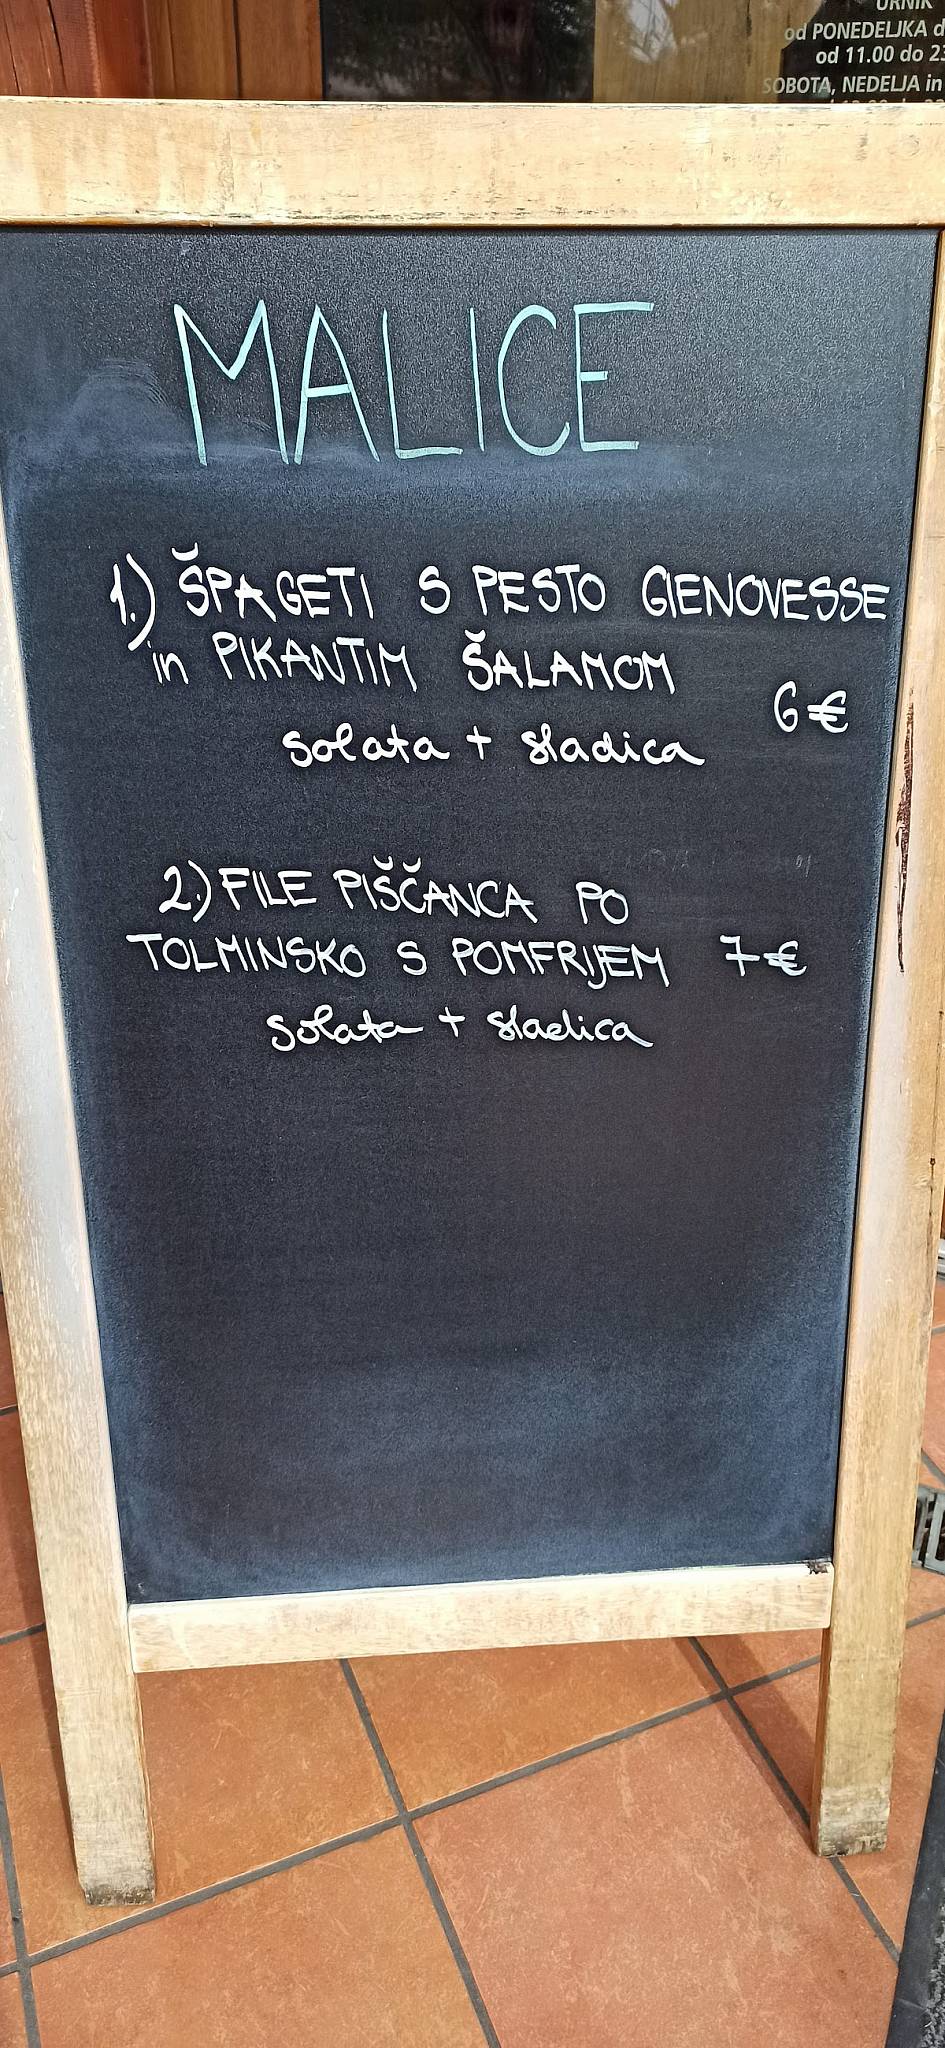 URNIK
od PONEDELJKA d
od 11.00 do 23
SOBOTA, NEDELJA in
MALICE
1.) ŠPAGETI S PESTO GIENOVESSE
in PIKANTIM ŠALAMOM
6€
solata + sladica
2.) FILE PIŠČANCA PO
TOLMINSKO S POMFRIJEM 7€
solata + sladica